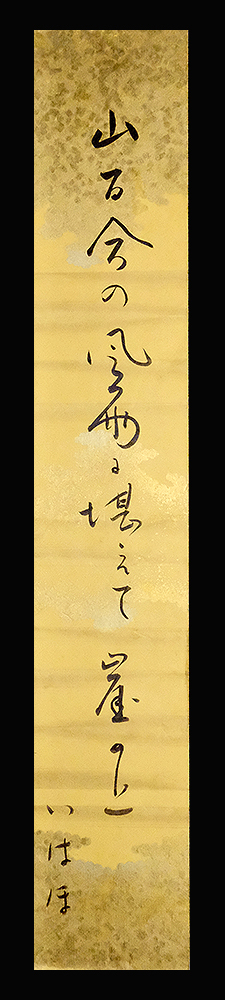 山百合の風雨に堪えて崖の上
いはほ